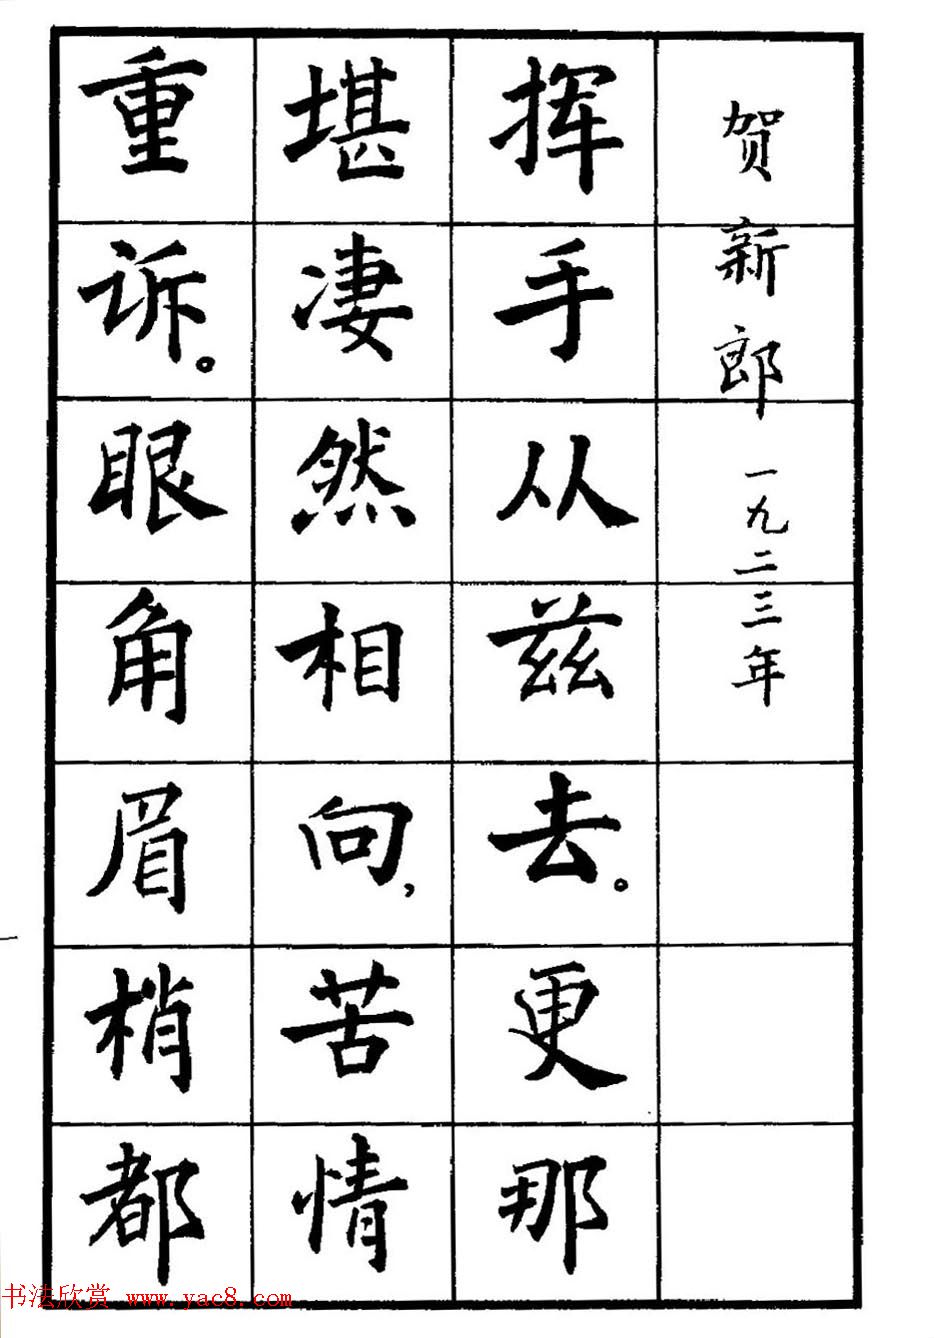 贺新郎 一九二三年
挥手从兹去。更那
堪凄然相向，苦情
重诉。眼角眉梢都
一
书法欣赏 www.yac8.com